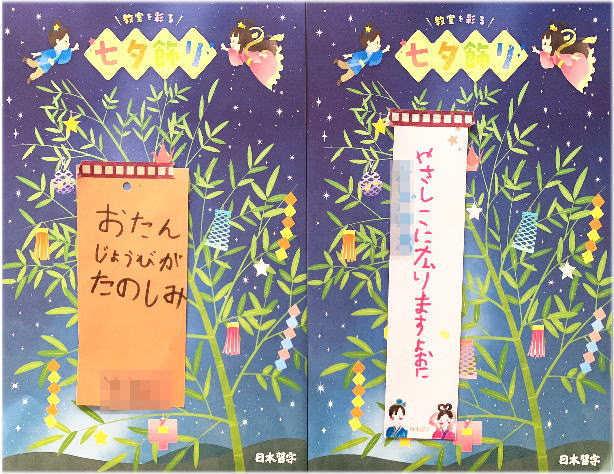 教室を彩る
七夕飾り
おたん
じょうびが
たのしみ
日本習字
教室を彩る
七夕飾り
やさしこになりますよおに
日本習字
日本習字